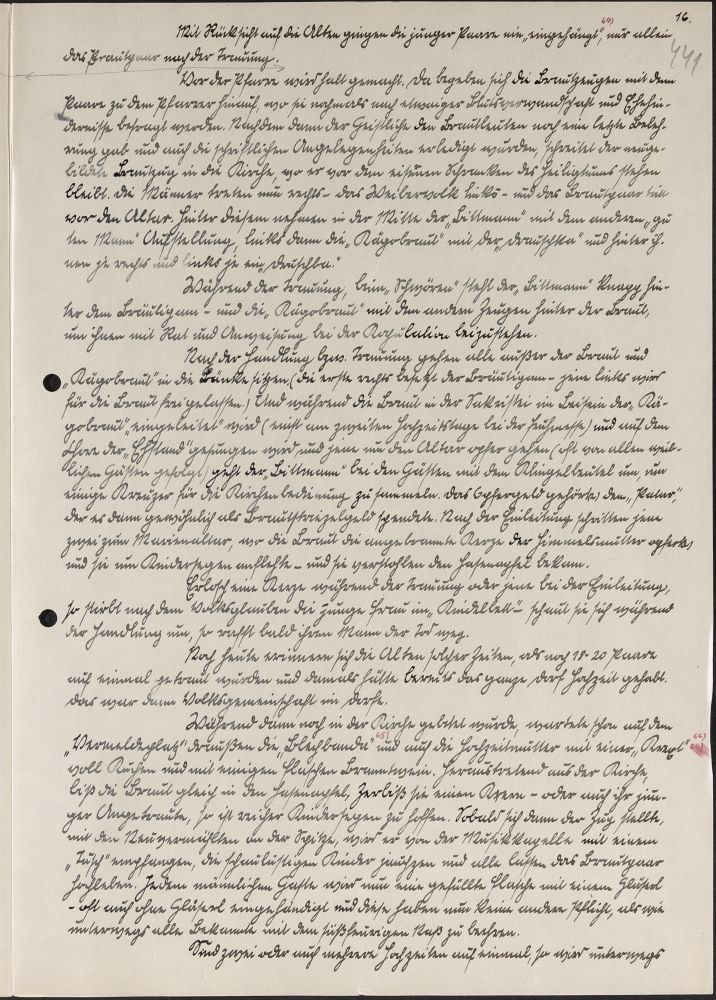 64) 16.
441
Mit Rücksicht auf die Alten gingen die junger Paare nie „eingehängt", nur allein
das Brautpaar nach der Trauung.
Vor der Pfarre wird halt gemacht. Da begeben sich die Brautzeugen mit dem
Paare zu dem Pfarrer hinauf, wo sie nochmals nach etwaiger Blutsverwandschaft und Ehehin-
dernisse befragt werden. Nachdem dann der Geistliche den Brautleuten noch eine letzte Beleh-
rung gab und auch die schriftlichen Angelegenheiten erledigt wurden, schreitet der neuge-
bildete Brautzug in die Kirche, wo er vor dem eisernen Schranken des Heiligtums stehen
bleibt. Die Männer treten nun rechts – das Weibervolk links – und das Brautpaar tritt
vor den Altar. Hinter diesem nehmen in der Mitte der „Bittmann" mit dem anderen, „gu
ten Mann" Aufstellung, links dann die „Rägobraut" mit der „Drauschka" und hinter ih-
nen je rechts und links je ein „Druschba."
Während der Trauung, beim „Schwören" steht der „Bittmann" knapp hin-
ter dem Bräutigam – und die „Rägobraut" mit den andern Zeugen hinter der Braut,
um ihnen mit Rat und Anweisung bei der Kopulation beizustehen.
Nach der Handlung bzw. Trauung gehen alle außer der Braut und
„Rägobraut" in die Bänke sitzen, (die erste rechts besetzt der Bräutigam – jene links wird
für die Braut freigelassen.) Und während die Braut in der Sakristei im Beisein der „Rä-
gobraut" „eingeleitet" wird (meist am zweiten Hochzeitstage bei der Frühmesse) und auf dem
Chore der „Ehstand" gesungen wird und jene um den Altar opfer gehen (oft von allen weib-
lichen Gästen gefolgt) geht der „Bittmann" bei den Gästen mit dem Klingelbeutel um, um
einige Kreuzer für die Kirchenbedienung zu sammeln. Das Opfergeld gehört(e) dem „Pater",
der es dann gewöhnlich als Brautstraizelgeld spendete. Nach der Einleitung schritten jene
zwei zum Marienaltar, wo die Braut die angebrannte Kerze der Himmelsmutter opfert(e)
und sie um Kindersegen anflehte – und sie verstohlen den Hasenapfel bekam.
Erlosch eine Kerze während der Trauung oder jene bei der Einleitung,
so stirbt nach dem Volksglauben die junge Frau im „Kindelbett" – schaut sie sich während
der Handlung um, so rafft bald ihren Mann der Tod weg.
Noch heute erinnern sich die Alten solcher Zeiten, als noch 18-20 Paare
auf einmal getraut wurden und damals hätte bereits das ganze Dorf Hochzeit gehabt.
Das war dann Volksgemeinschaft im Dorfe.
Während dann noch in der Kirche gebetet wurde, wartete schon auf dem
„Vermeldeplatz" draußen die „Blechbanda" 65) und auch die Hochzeitmutter mit einer „Kraxl" 66)
voll Kuchen und mit einigen Flaschen Branntwein. Heraustretend aus der Kirche,
biß die Braut gleich in den Hasenapfel, zerbiß sie einen Kern – oder auch ihr jun-
ger Angetraute, so ist reicher Kindersegen zu hoffen. Sobald sich dann der Zug stellte,
mit den Neuvermählten an der Spitze, wird er von der Musikkapelle mit einem
„Tusch" empfangen, die schaulustigen Kinder jauchzen und alle lassen das Brautpaar
hochleben. Jedem männlichen Gaste wird nun eine gefüllte Flasche mit einem Gläserl
– oft auch ohne Gläserl eingehändigt und diese haben nun keine andere Pflicht, als wie
unterwegs alle Bekannte mit dem süßfeurigen Naß zu beehren.
Sind zwei oder auch mehrere Hochzeiten auf einmal, so wird unterwegs